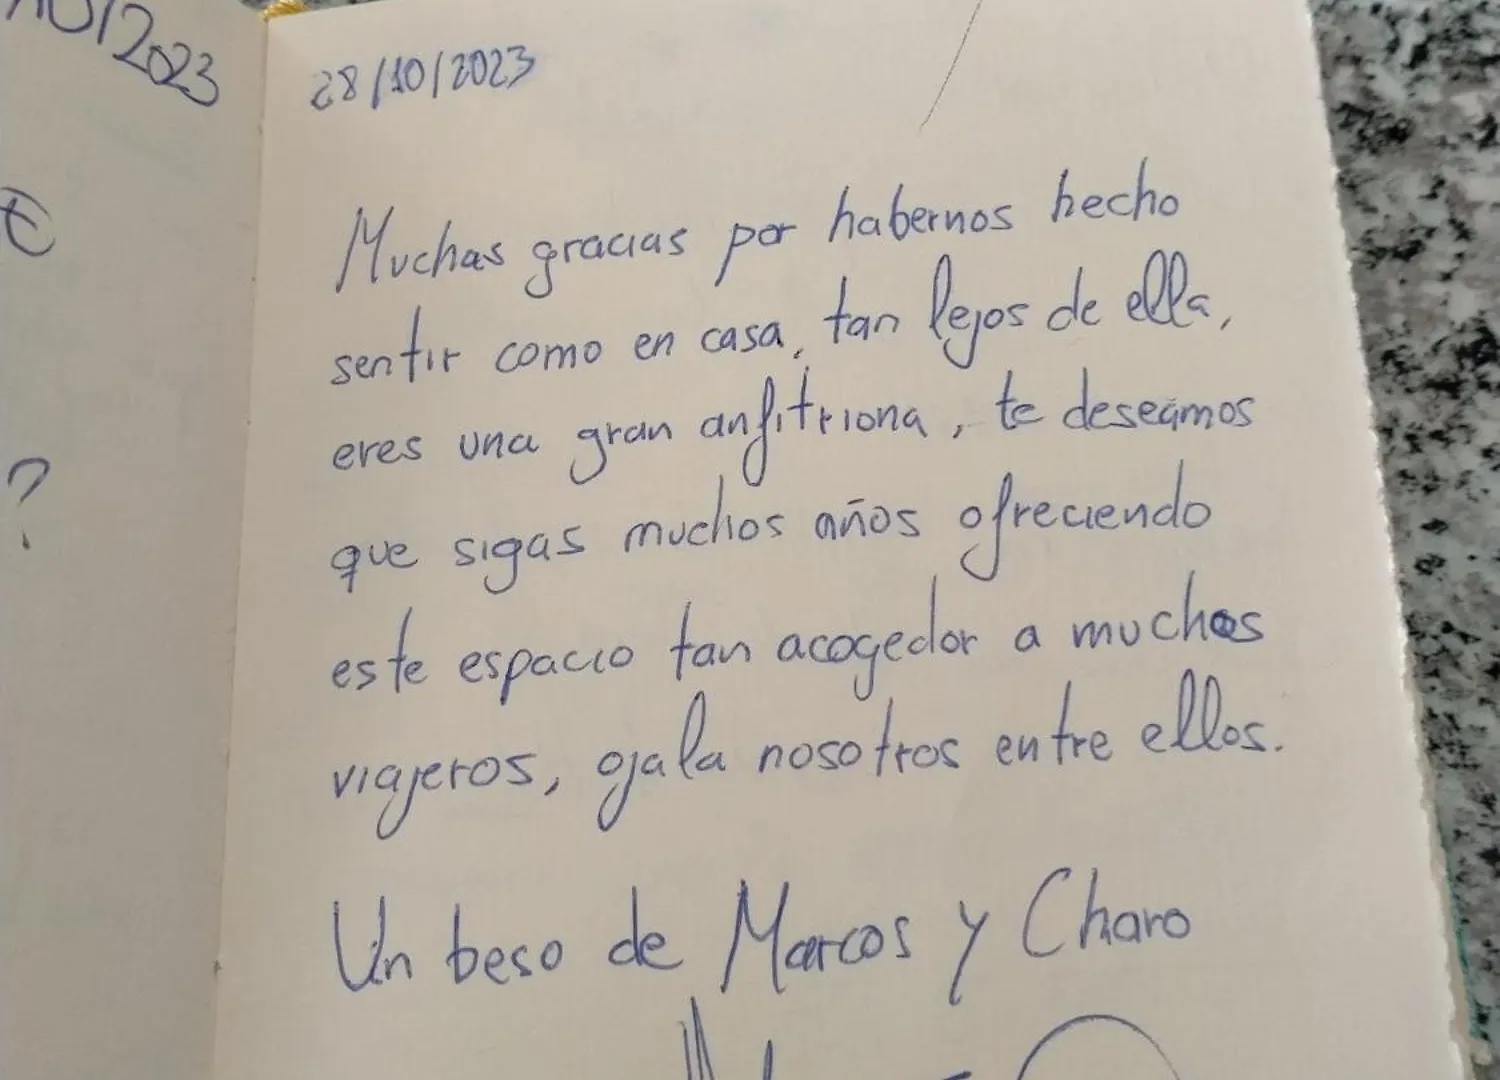 10/2023
€
?
28/10/2023
Muchas gracias por habernos hecho
sentir como en casa, tan lejos de ella,
eres una gran anfitriona, te deseamos
que sigas muchos años ofreciendo
este espacio tan acogedor a muchos
viajeros, ojala nosotros entre ellos.
Un beso de Marcos y Charo